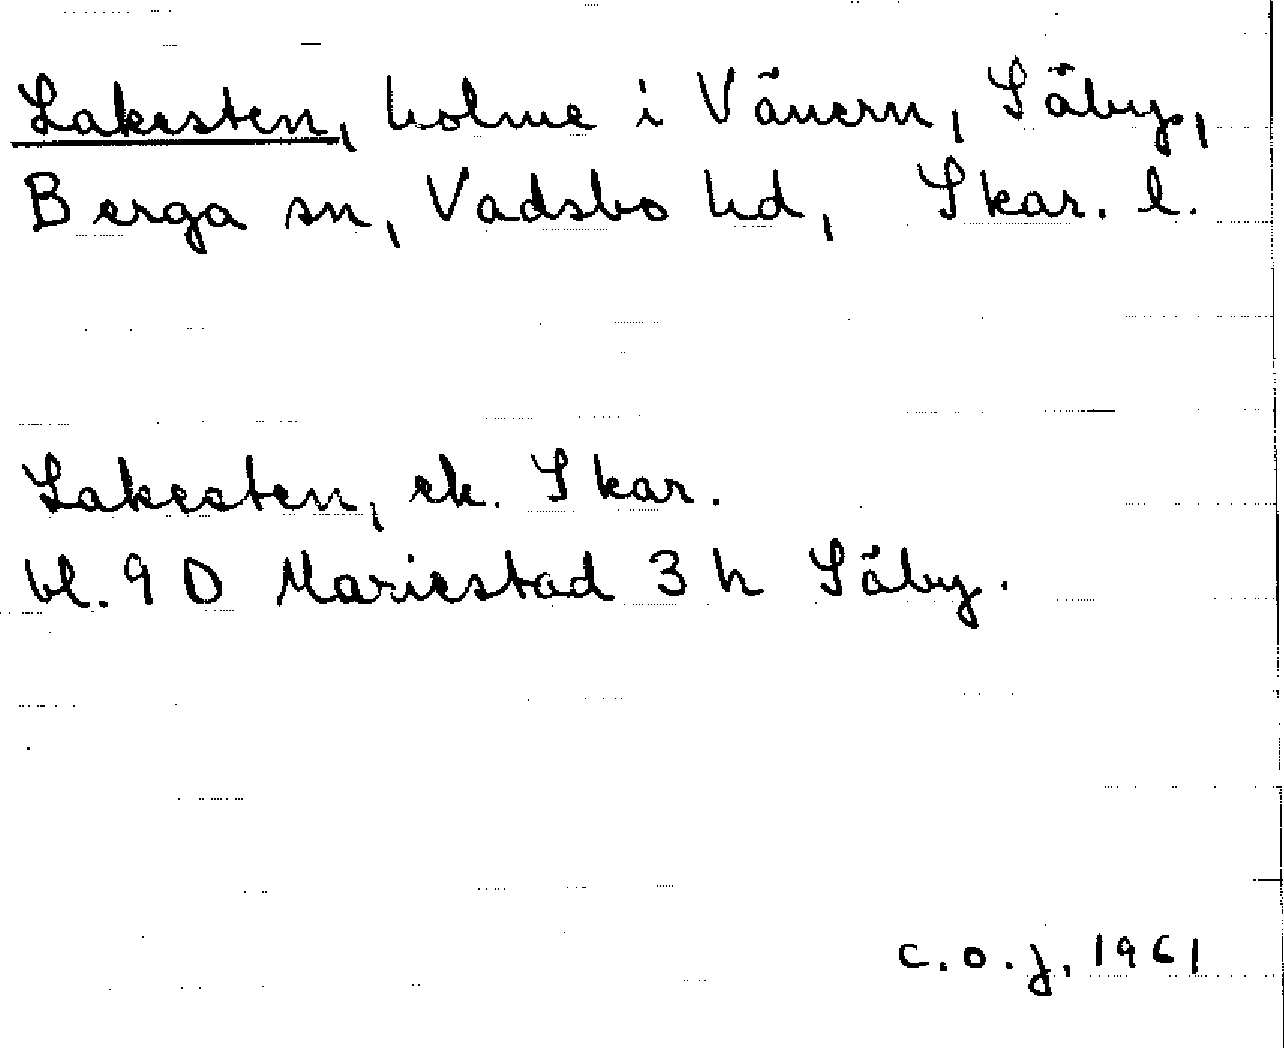 Lakesten, holme i Vänern, Säby,
Berga sn, Vadsbo hd, Skar. l.
Lakesten, ek. Skar.
bl. 9 D Mariestad 3 h Säby.
C.O.J. 1961